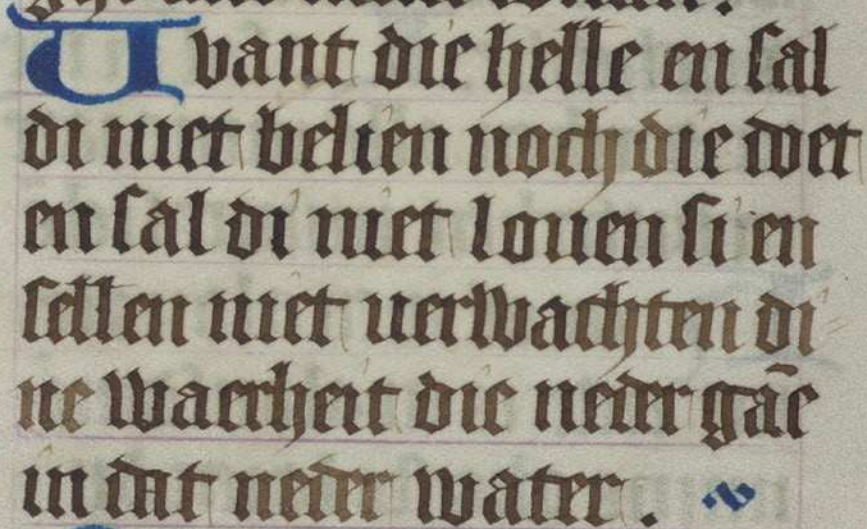 Uvant die helle en sal
di niet belien noch die doet
en sal di niet louen si en
sellen niet uerwachten di-
ne waerheit die neder gāe
in dat neder water.